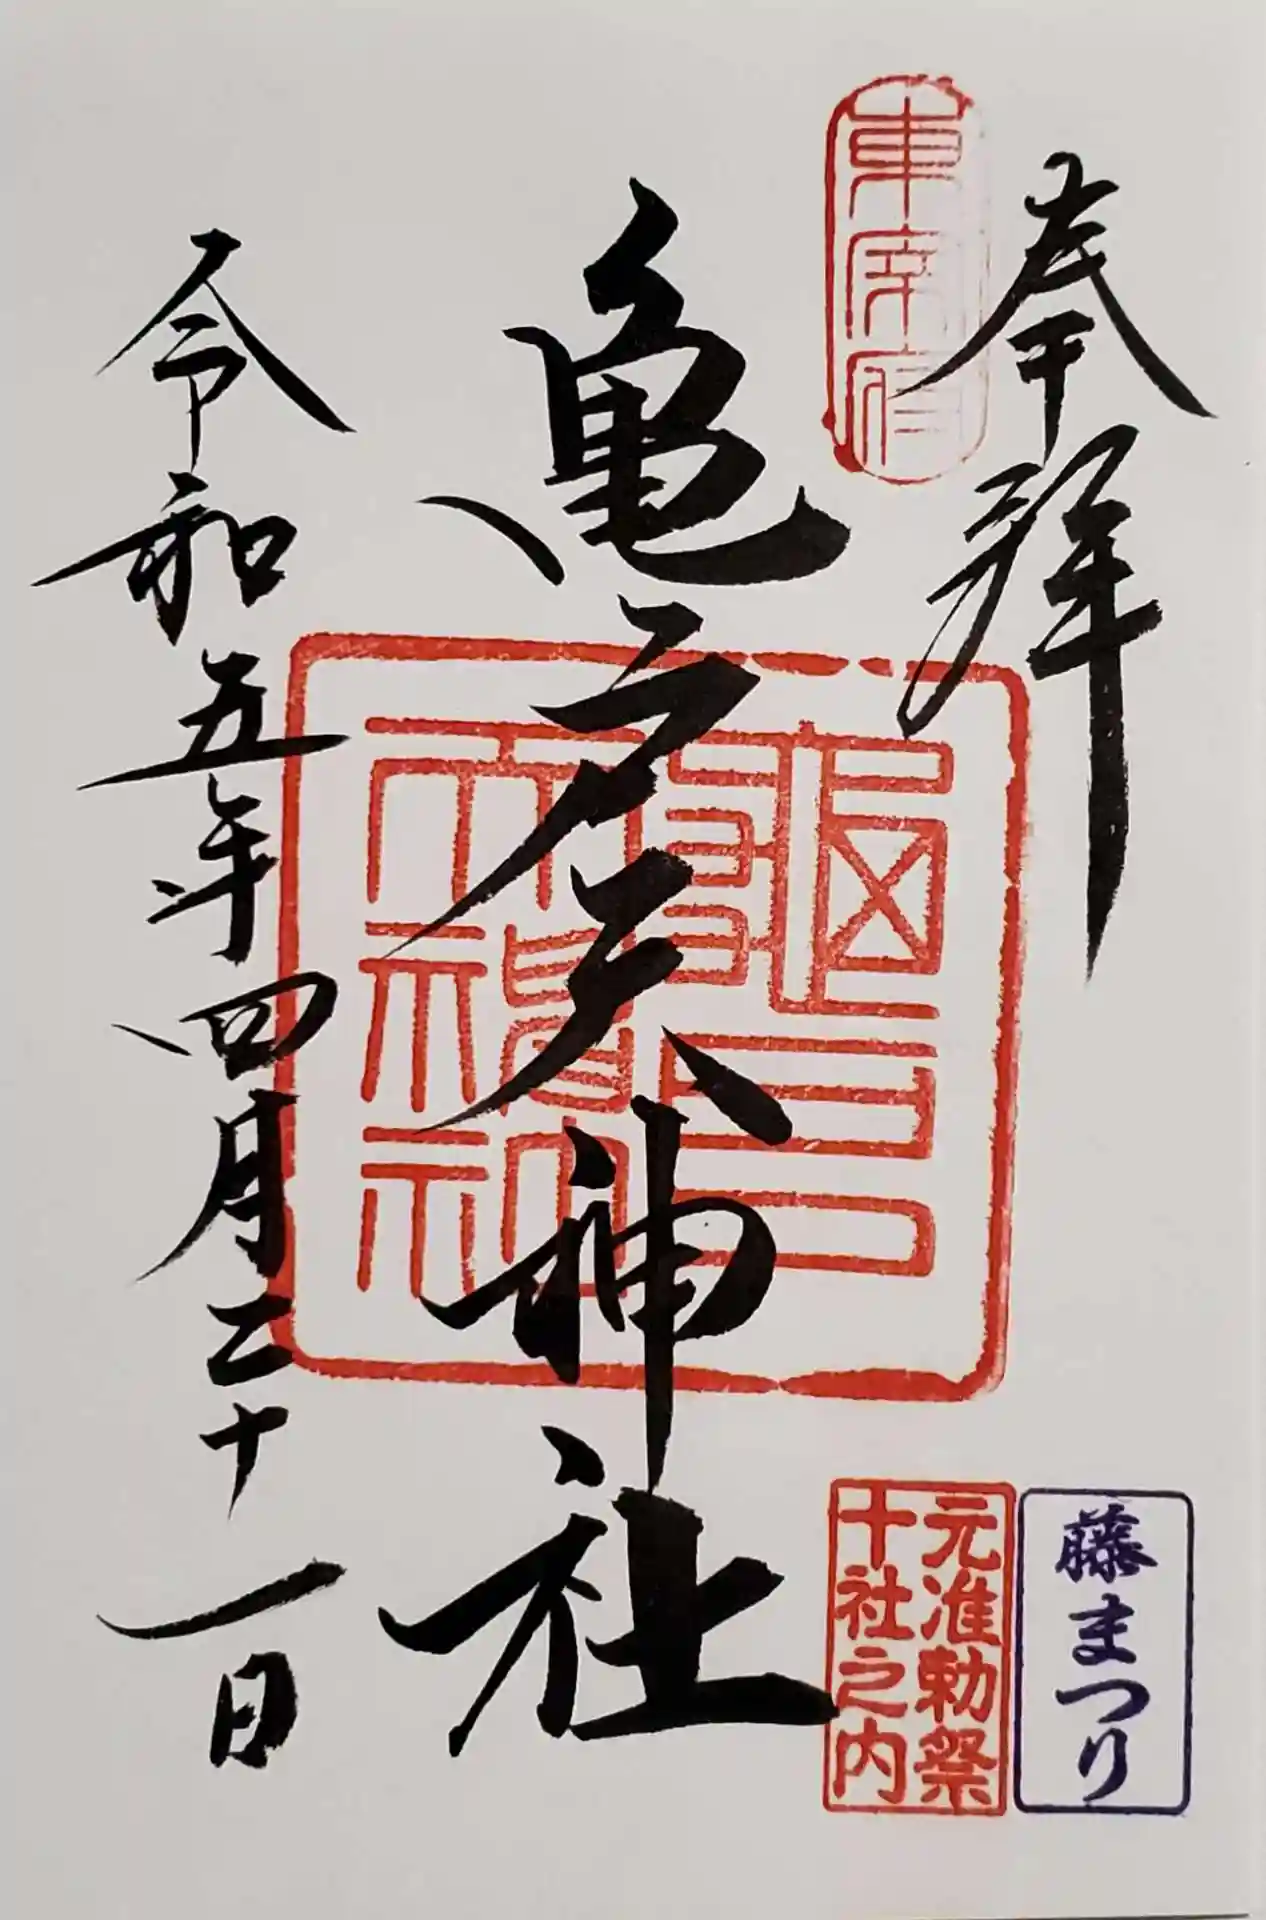 奉拝
東宰府
亀戸天神社
令和五年四月二十一日
元准勅祭
十社之内
藤まつり